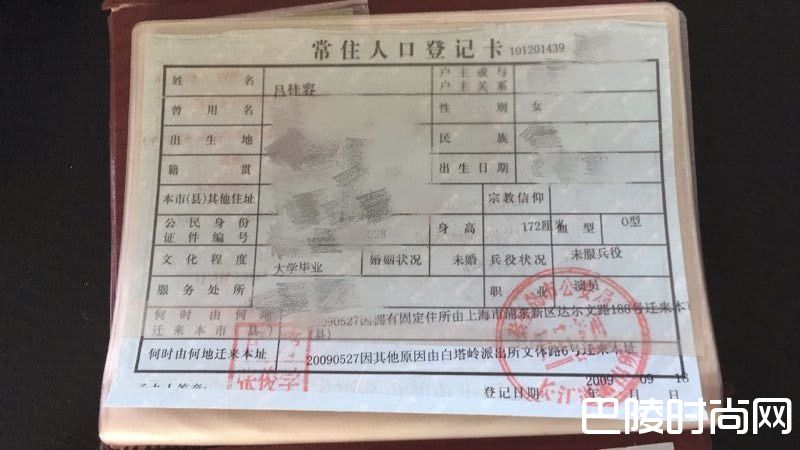 常住人口登记卡 101201439
姓 名 吕佳容 户主或与户主关系
曾用名 性 别 女
出生地 民 族
籍 贯 出生日期
本市(县)其他住址 宗教信仰
公民身份证件编号 028 身 高 172厘米 血型 O型
文化程度 大学毕业 婚姻状况 未婚 兵役状况 未服兵役
服务处所 职 业 演员
何时由何地迁来本市(县) 20090527因拥有固定住所由上海市浦东新区达尔文路188号迁来本市(县)
何时由何地迁来本址 20090527因其他原因由白塔岭派出所文体路6号迁来本址
登记日期: 2009 年 09 月 18 日
市公安局
巴陵时尚网